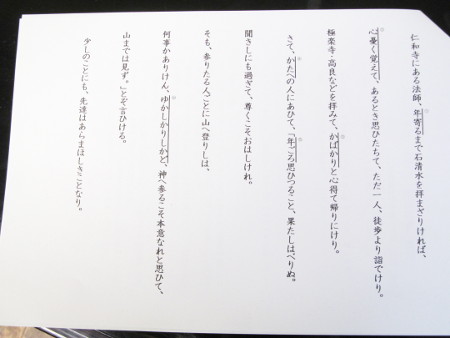 仁和寺にある法師、年寄るまで石清水を拝まざりければ、
心憂く覚えて、あるとき思ひたちて、ただ一人、徒歩より詣でけり。
極楽寺・高良などを拝みて、かばかりと心得て帰りにけり。
さて、かたへの人にあひて、「年ごろ思ひつること、果たしはべりぬ。
聞きしにも過ぎて、尊くこそおはしけれ。
そも、参りたる人ごとに山へ登りしは、
何事かありけん、ゆかしかりしかど、神へ参るこそ本意なれと思ひて、
山までは見ず。」とぞ言ひける。
少しのことにも、先達はあらまほしきことなり。